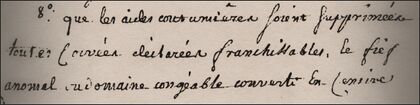 8.° que les aides coutumieres soient supprimées
toutes Corvées déclarées franchissables, le fief
anomal ou domaine congéable converti En Censive